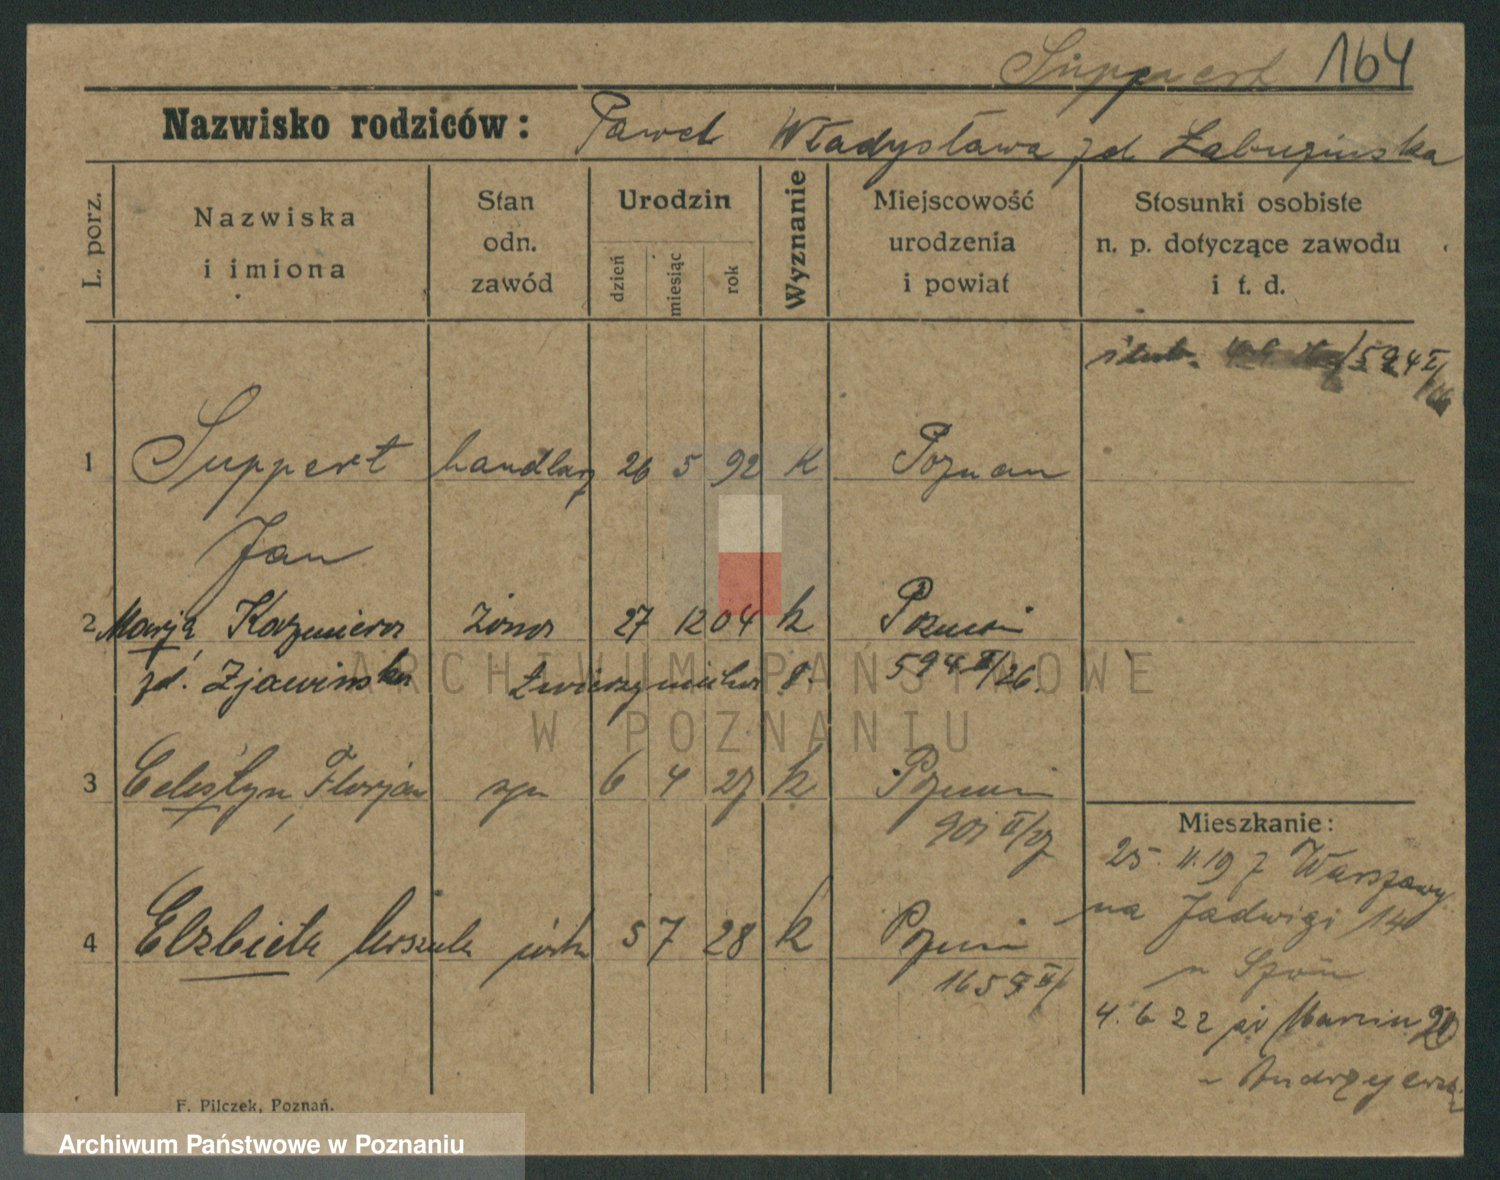 Suppert 164
Nazwisko rodziców: Paweł Władysława zd. Łabuzińska
L. porz.
Nazwiska
i imiona
Stan
odn.
zawód
Urodzin
dzień
miesiąc
rok
Wyznanie
Miejscowość
urodzenia
i powiat
Stosunki osobiste
n. p. dotyczące zawodu
i t. d.
ślub. /594 II/
1 Suppert handlarz 26 5 92 k Poznan
Jan
2 Marja, Kazimiera żona 27 12 04 k Poznań
zd. Zjawińska Zwierzyniecka 8. 594 II/26.
3 Celestyn, Florjan syn 6 4 27 k Poznań
901 II/27
Mieszkanie:
25. 11. 19 z Warszawy
na Jadwigi 14
4 Elżbieta Urszula córka 5 7 28 k Poznań
1659 II/
u
4. 6 22 Marcin
u Andrzejewska
F. Pilczek, Poznań.
ARCHIWUM PAŃSTWOWE
W POZNANIU
Archiwum Państwowe w Poznaniu